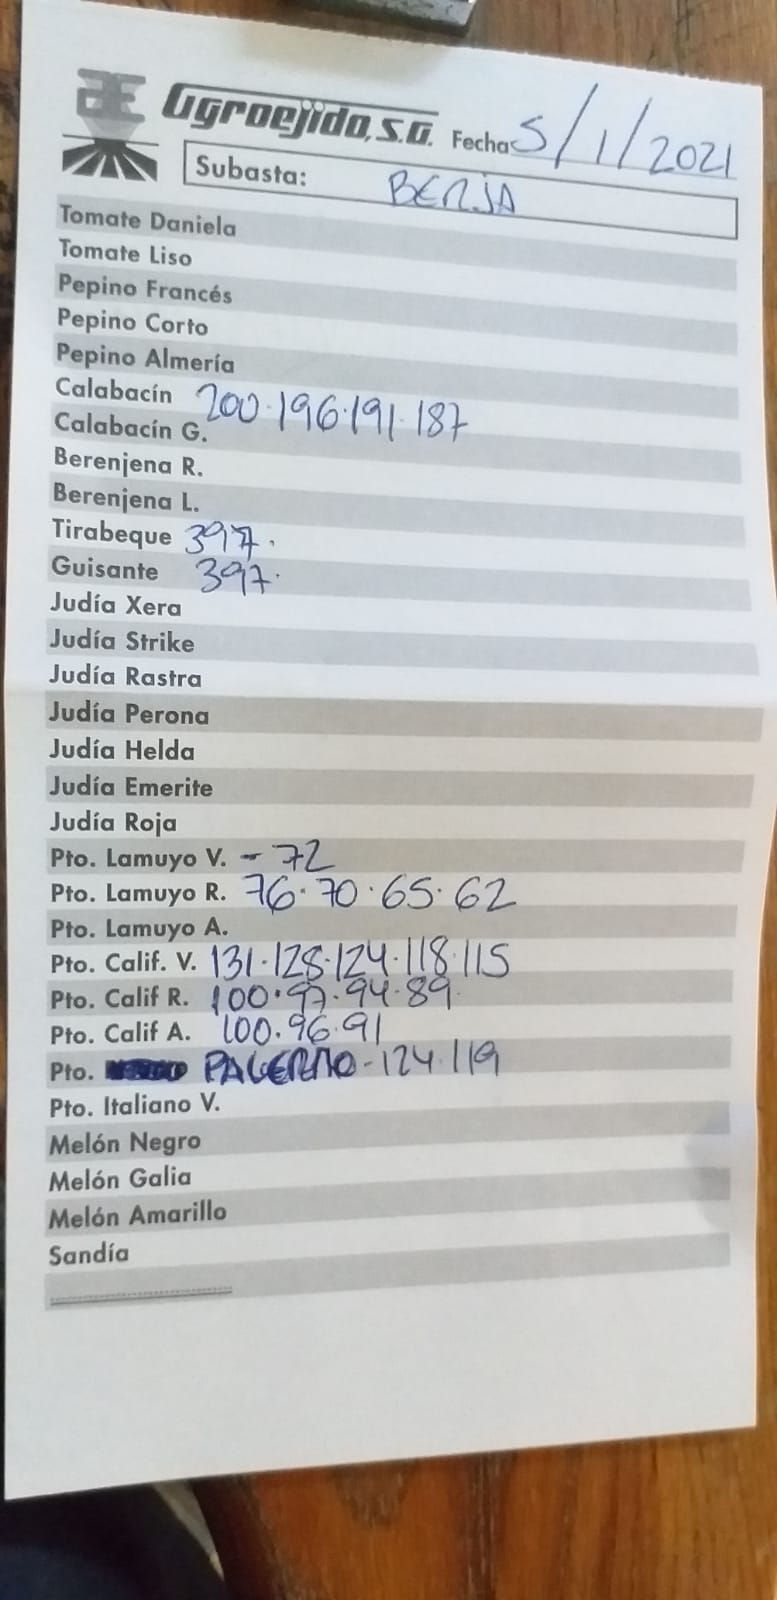 Agroejido, S.A. Fecha 5/1/2021
Subasta: BERJA
Tomate Daniela
Tomate Liso
Pepino Francés
Pepino Corto
Pepino Almería
Calabacín 200.196.191.187
Calabacín G.
Berenjena R.
Berenjena L.
Tirabeque 397.
Guisante 397.
Judía Xera
Judía Strike
Judía Rastra
Judía Perona
Judía Helda
Judía Emerite
Judía Roja
Pto. Lamuyo V. - 72
Pto. Lamuyo R. 76.70.65.62
Pto. Lamuyo A.
Pto. Calif. V. 131.128.124.118.115
Pto. Calif R. 100.97.94.89
Pto. Calif A. 100.96.91
Pto. PALERMO-124.119
Pto. Italiano V.
Melón Negro
Melón Galia
Melón Amarillo
Sandía